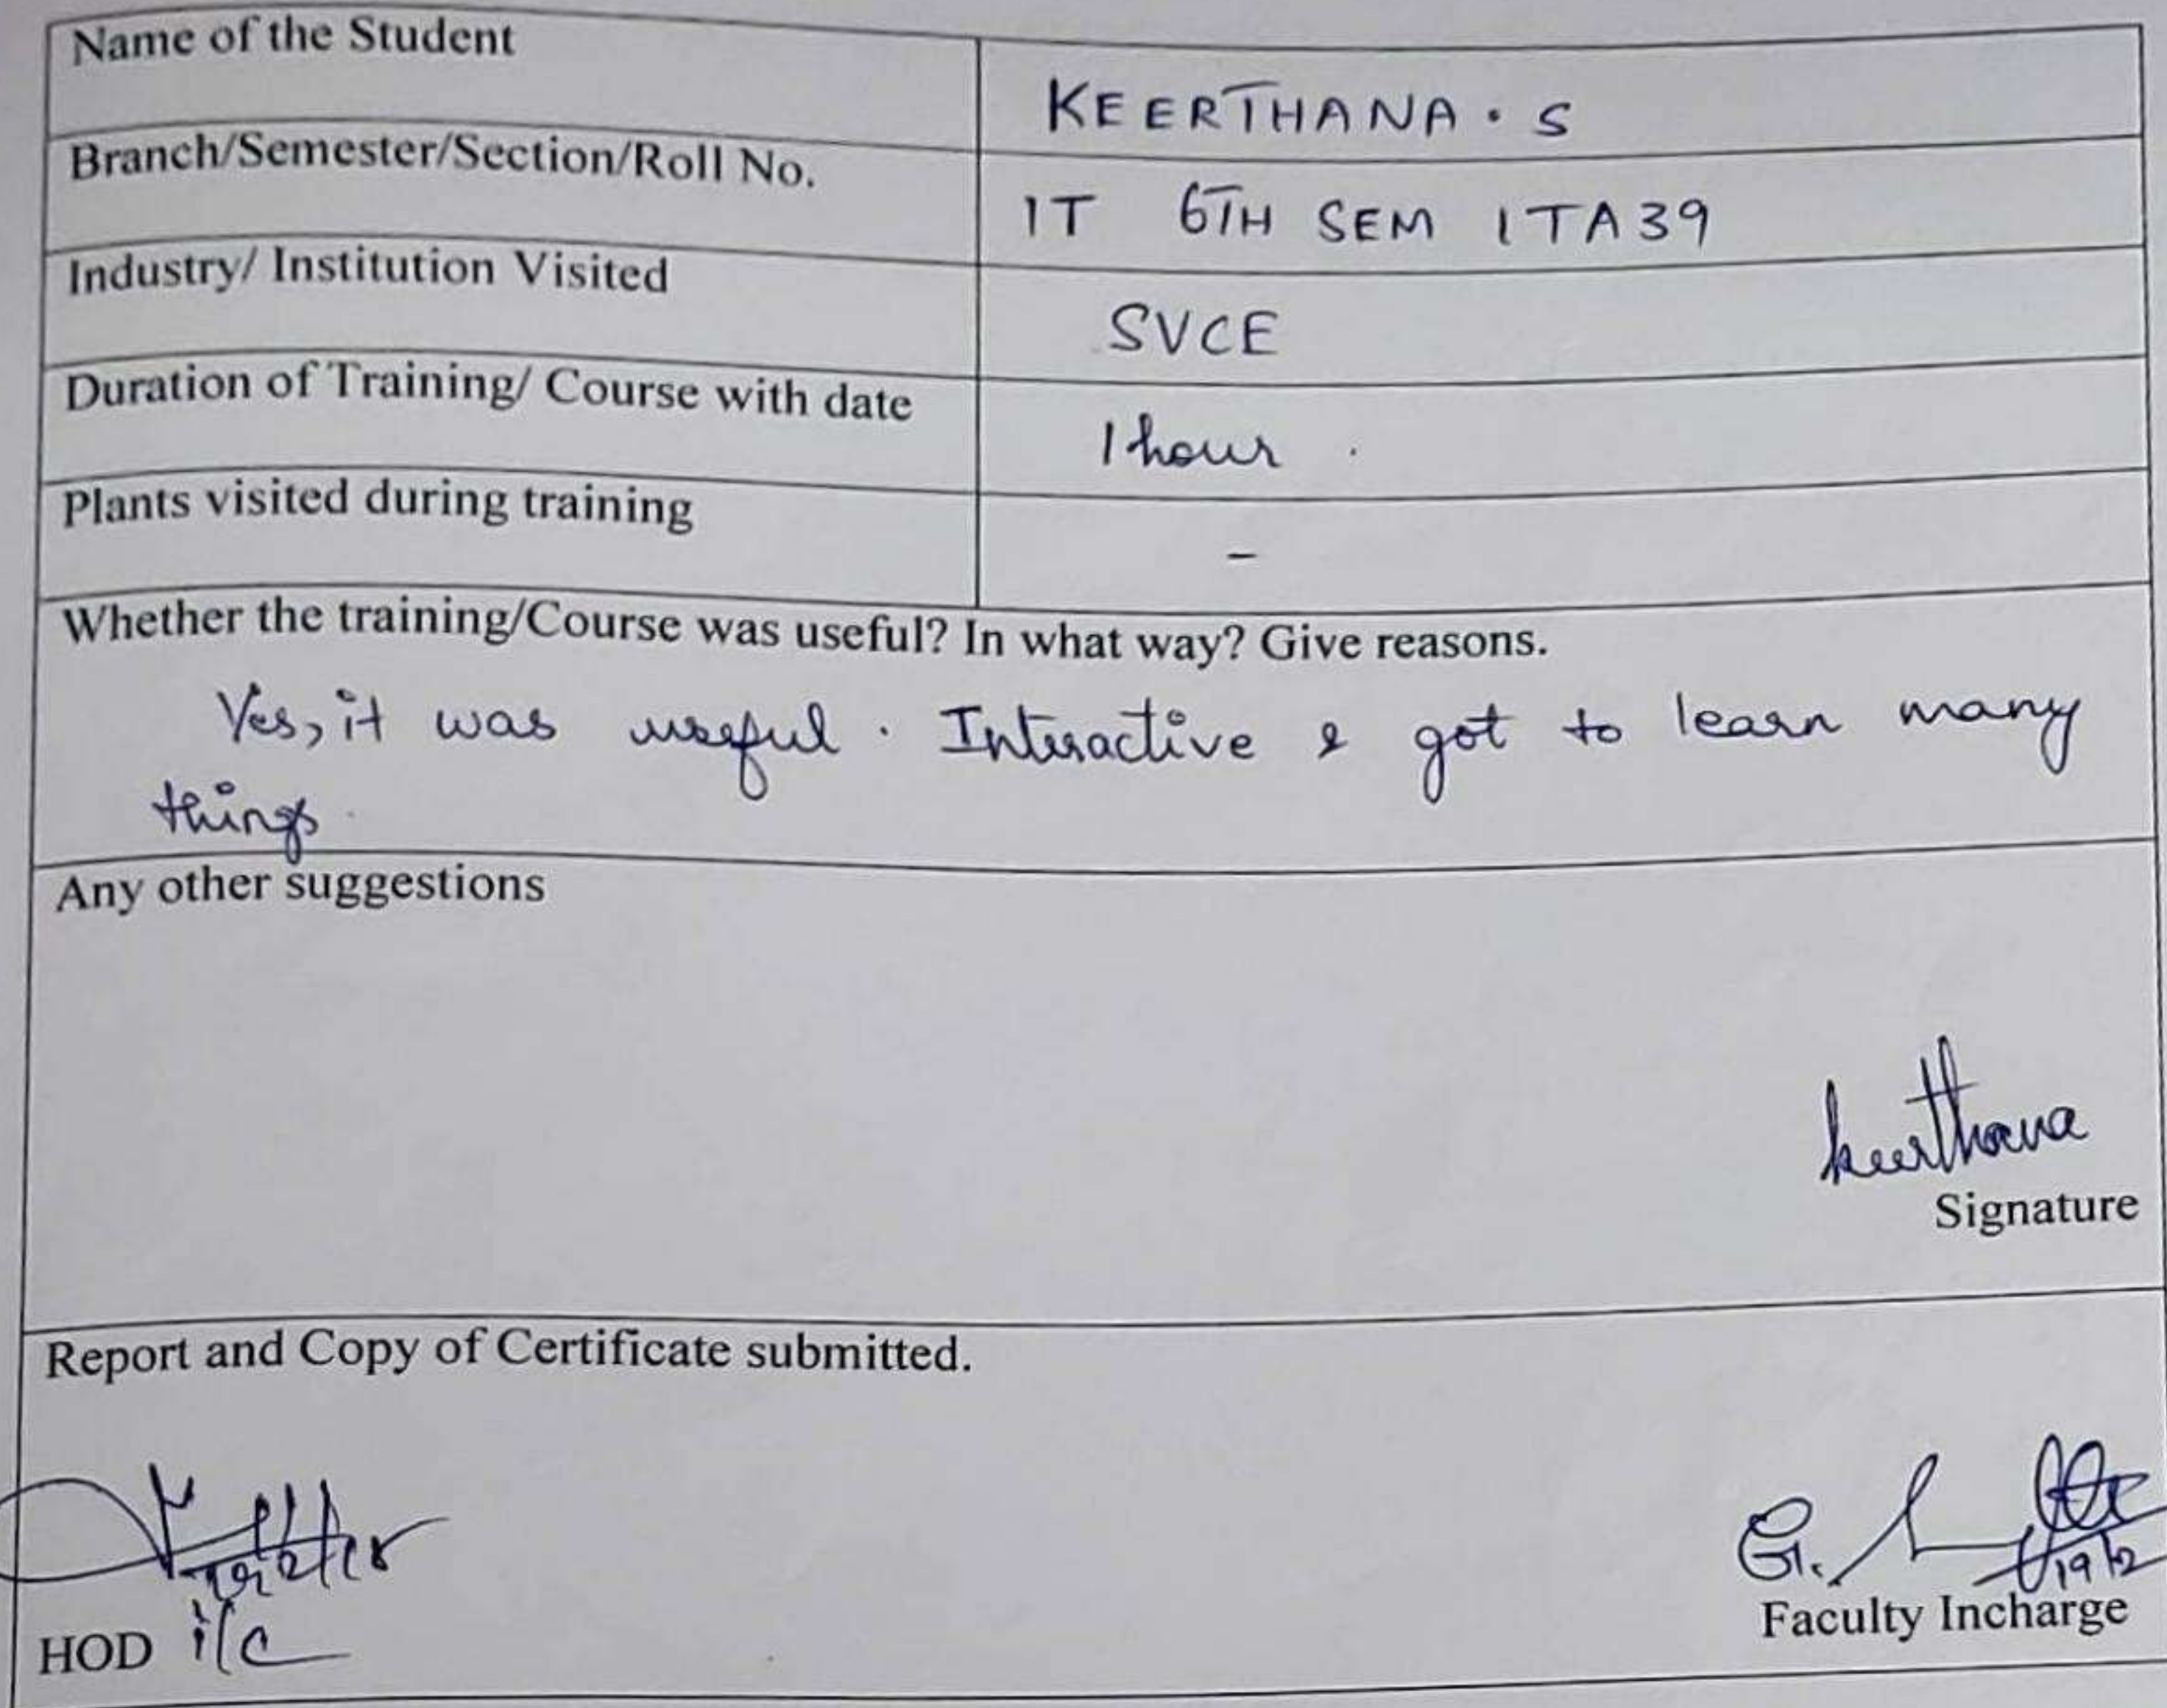 Name of the Student
KEERTHANA . S
Branch/Semester/Section/Roll No.
IT 6TH SEM ITA39
Industry/ Institution Visited
SVCE
Duration of Training/ Course with date
1 hour .
Plants visited during training
-
Whether the training/Course was useful? In what way? Give reasons.
Yes, it was useful . Interactive & got to learn many
things.
Any other suggestions
Keerthana
Signature
Report and Copy of Certificate submitted.
G.
19/2
HOD i/c
Faculty Incharge